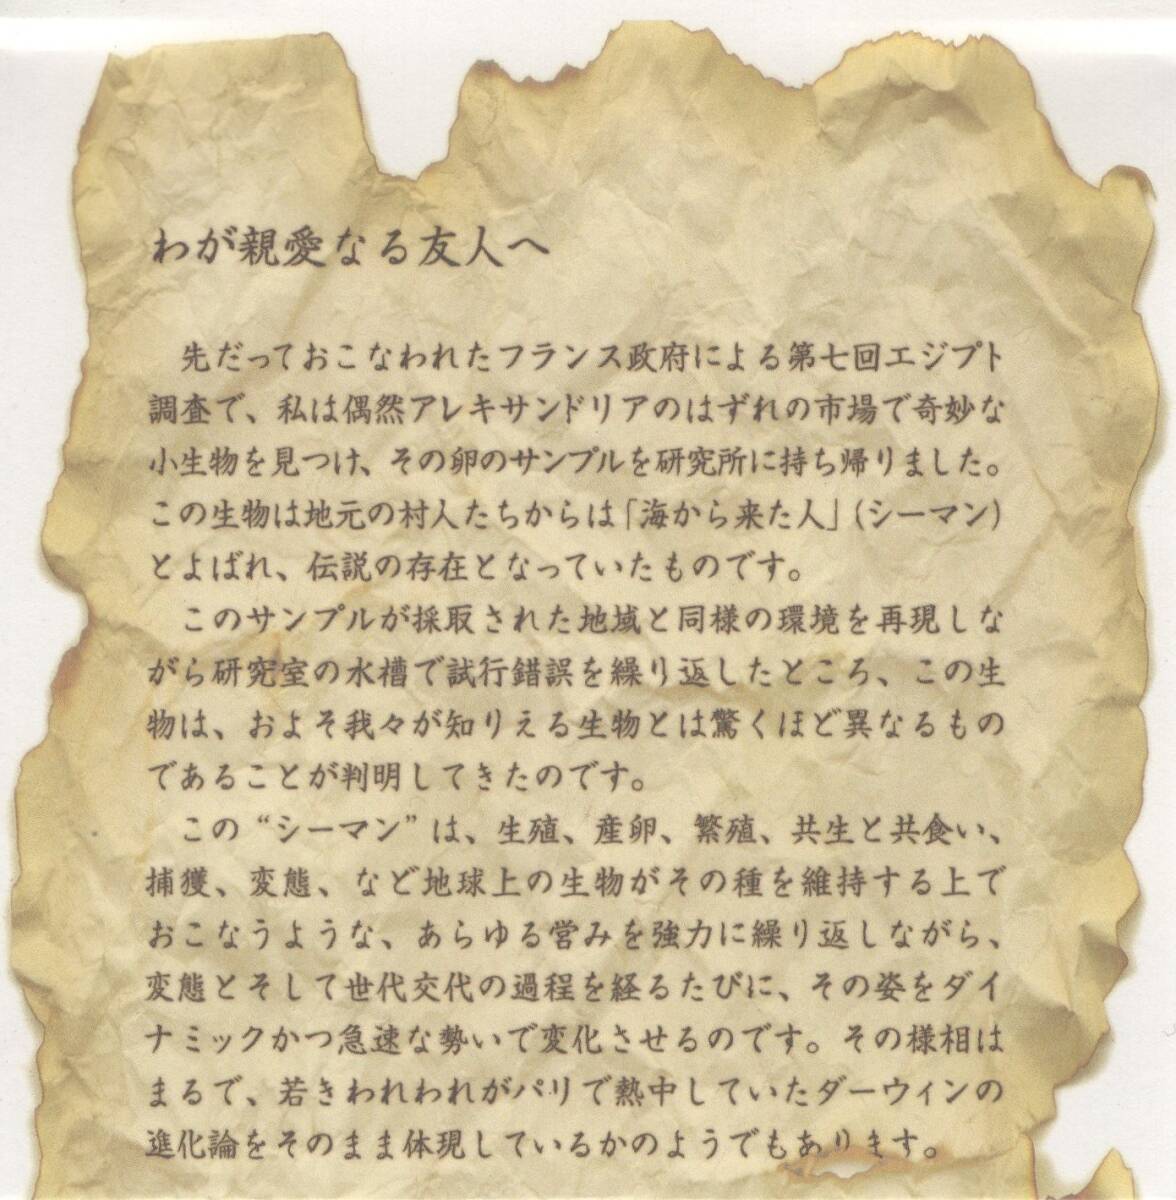 わが親愛なる友人へ
先だっておこなわれたフランス政府による第七回エジプト
調査で、私は偶然アレキサンドリアのはずれの市場で奇妙な
小生物を見つけ、その卵のサンプルを研究所に持ち帰りました。
この生物は地元の村人たちからは「海から来た人」(シーマン)
とよばれ、伝説の存在となっていたものです。
このサンプルが採取された地域と同様の環境を再現しな
がら研究室の水槽で試行錯誤を繰り返したところ、この生
物は、およそ我々が知りえる生物とは驚くほど異なるもの
であることが判明してきたのです。
この“シーマン”は、生殖、産卵、繁殖、共生と共食い、
捕獲、変態、など地球上の生物がその種を維持する上で
おこなうような、あらゆる営みを強力に繰り返しながら、
変態とそして世代交代の過程を経るたびに、その姿をダイ
ナミックかつ急速な勢いで変化させるのです。その様相は
まるで、若きわれわれがパリで熱中していたダーウィンの
進化論をそのまま体現しているかのようでもあります。